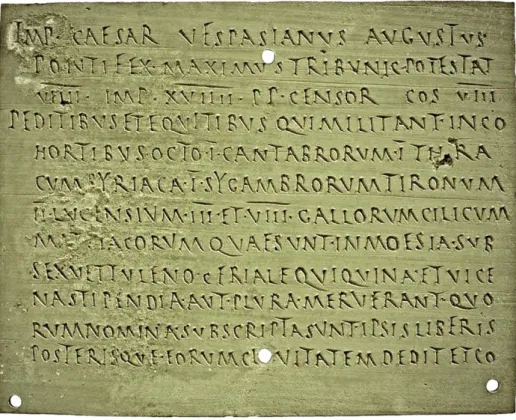 IMP· CAESAR VESPASIANVS AVGVSTVS
PONTIFEX·MAXIMVSTRIBVNIC·POTESTAT
VIIII· IMP·XVIIII·P·P·CENSOR COS VIII
PEDITIBVSETEQVITIBVS QVIMILITANT·INCO
HORTIBVS·OCTO·I·CANTABRORVM·I THRA
CVM SYRIACA·I·SYGAMBRORVMTIRONVM
II·LVCENSIVM·III·ET·VIII·GALLORVMCILICVM
MATTIACORVMQVAESVNT·INMOESIA·SVB
SEXVETTVLENO·CERIALEQVIQVINA·ETVICE
NASTIPENDIAAVT·PLVRA·MERVERANT·QVO
RVMNOMINA·SVBSCRIPTASVNTIPSISLIBERIS
POSTERISQVE·EORVMCIVITATEMDEDITETCO